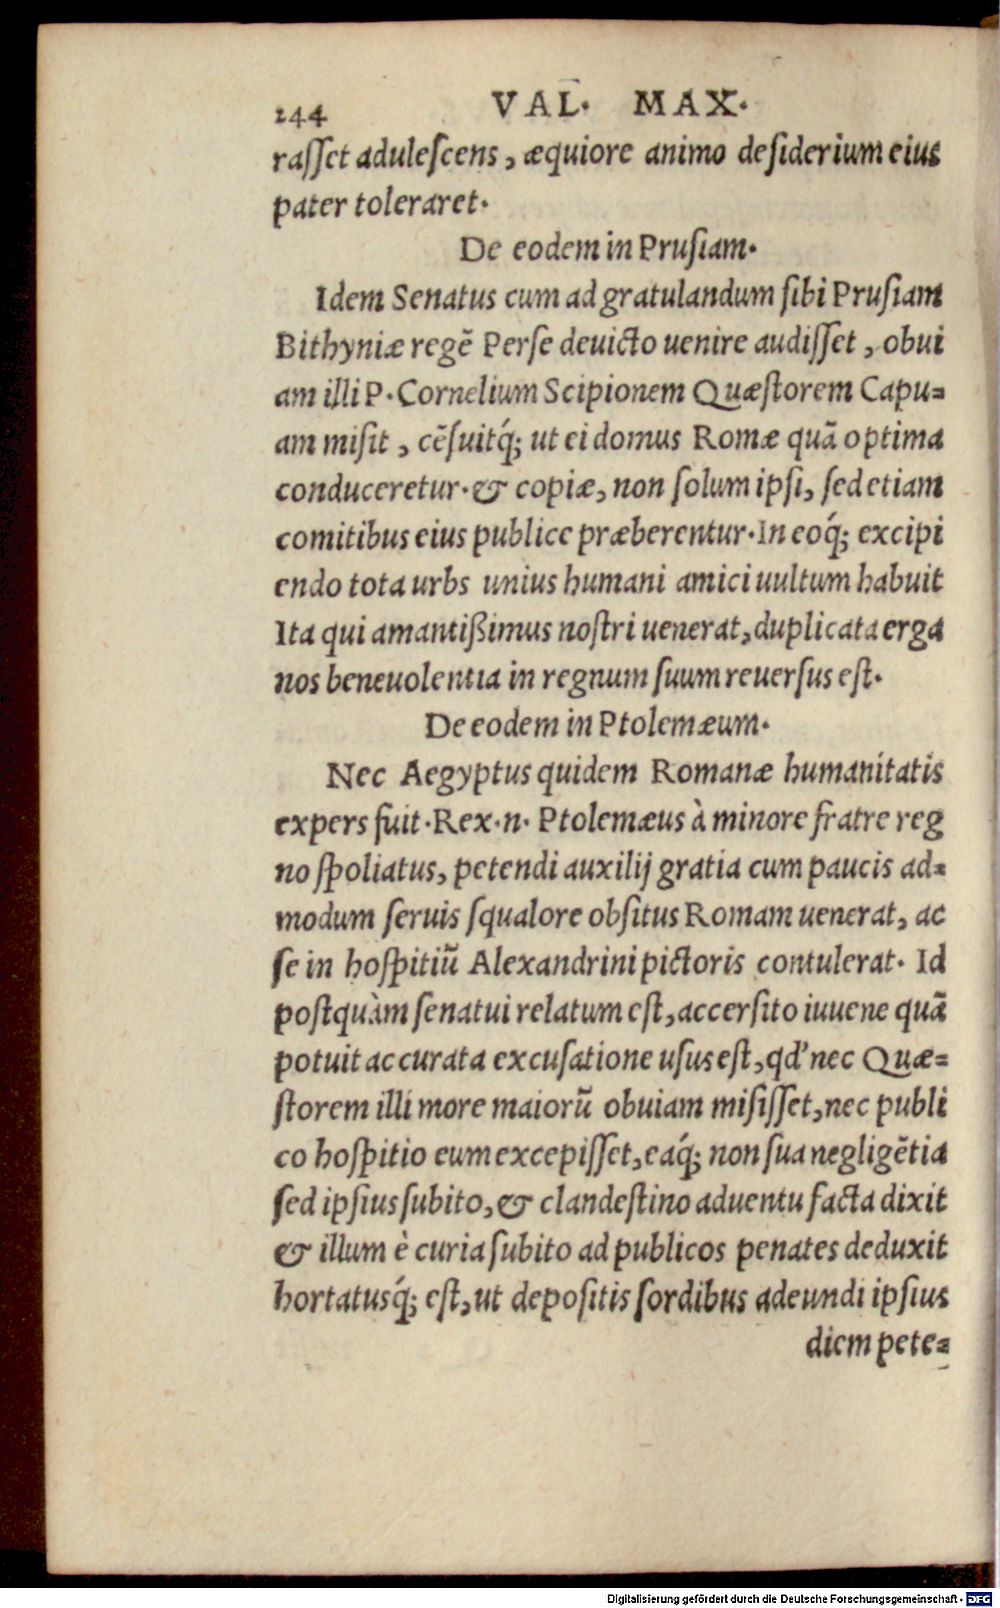 244 VAL. MAX.
raſſet aduleſcens, æquiore animo deſiderium eius
pater toleraret.
De eodem in Pruſiam.
Idem Senatus cum ad gratulandum ſibi Pruſiam
Bithyniæ regē Perſe deuicto uenire audiſſet, obui
am illi P. Cornelium Scipionem Quæſtorem Capu=
am miſit, cēſuitq́; ut ei domus Romæ quā optima
conduceretur. & copiæ, non ſolum ipſi, ſed etiam
comitibus eius publice præberentur. In eoq́; excipi
endo tota urbs unius humani amici uultum habuit
Ita qui amantißimus noſtri uenerat, duplicata erga
nos beneuolentia in regnum ſuum reuerſus eſt.
De eodem in Ptolemæum.
Nec Aegyptus quidem Romanæ humanitatis
expers fuit. Rex. n. Ptolemæus à minore fratre reg
no ſpoliatus, petendi auxilij gratia cum paucis ad=
modum ſeruis ſqualore obſitus Romam uenerat, ac
ſe in hoſpitiū Alexandrini pictoris contulerat. Id
poſtquàm ſenatui relatum eſt, accerſito iuuene quā
potuit accurata excuſatione uſus eſt, qd' nec Quæ=
ſtorem illi more maiorū obuiam miſiſſet, nec publi
co hoſpitio eum excepiſſet, eaq́; non ſua negligētia
ſed ipſius ſubito, & clandeſtino aduentu facta dixit
& illum è curia ſubito ad publicos penates deduxit
hortatusq́; eſt, ut depoſitis ſordibus adeundi ipſius
diem pete=
Digitalisierung gefördert durch die Deutsche Forschungsgemeinschaft - DFG